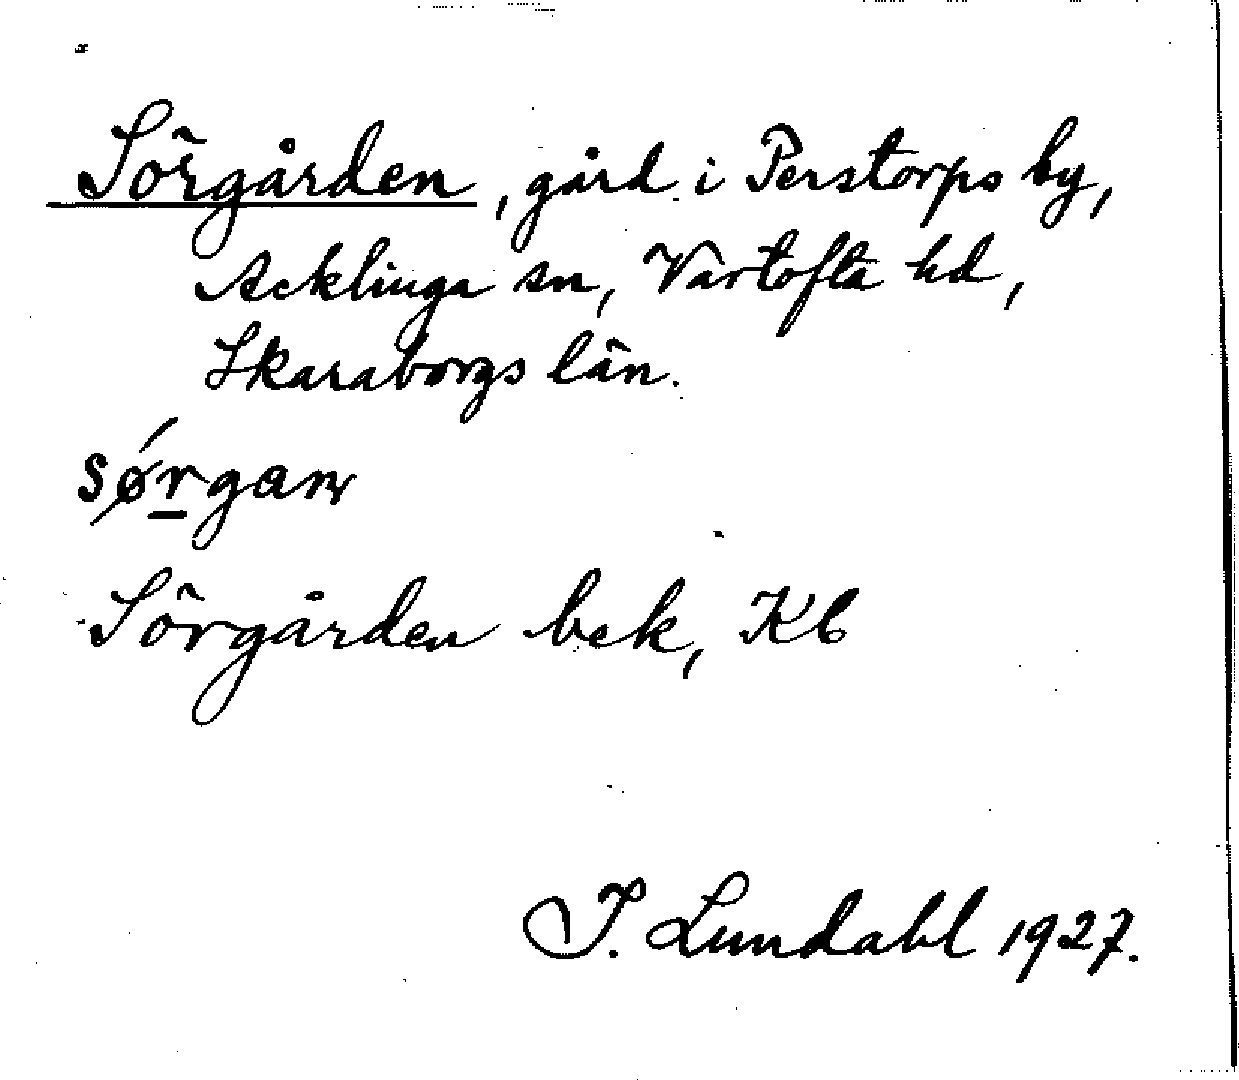 Sörgården, gård i Perstorps by,
Acklinga sn, Vartofta hd,
Skaraborgs län.
sǿrgan
Sörgården bek, Kb
I. Lundahl 1927.